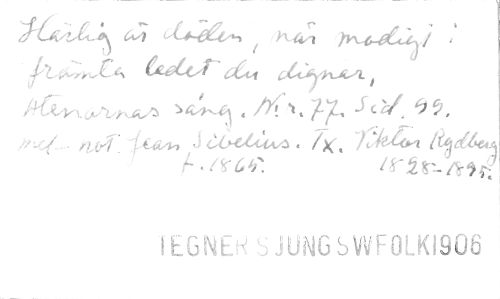 Härlig är döden, när modigt i
främta ledet du dignar,
Atenarnas sång. N:r. 77. Sid. 99.
med not. Jean Sibelius. Tx. Viktor Rydberg
f. 1865. 1828-1895.
TEGNER SJUNG SWFOLK1906